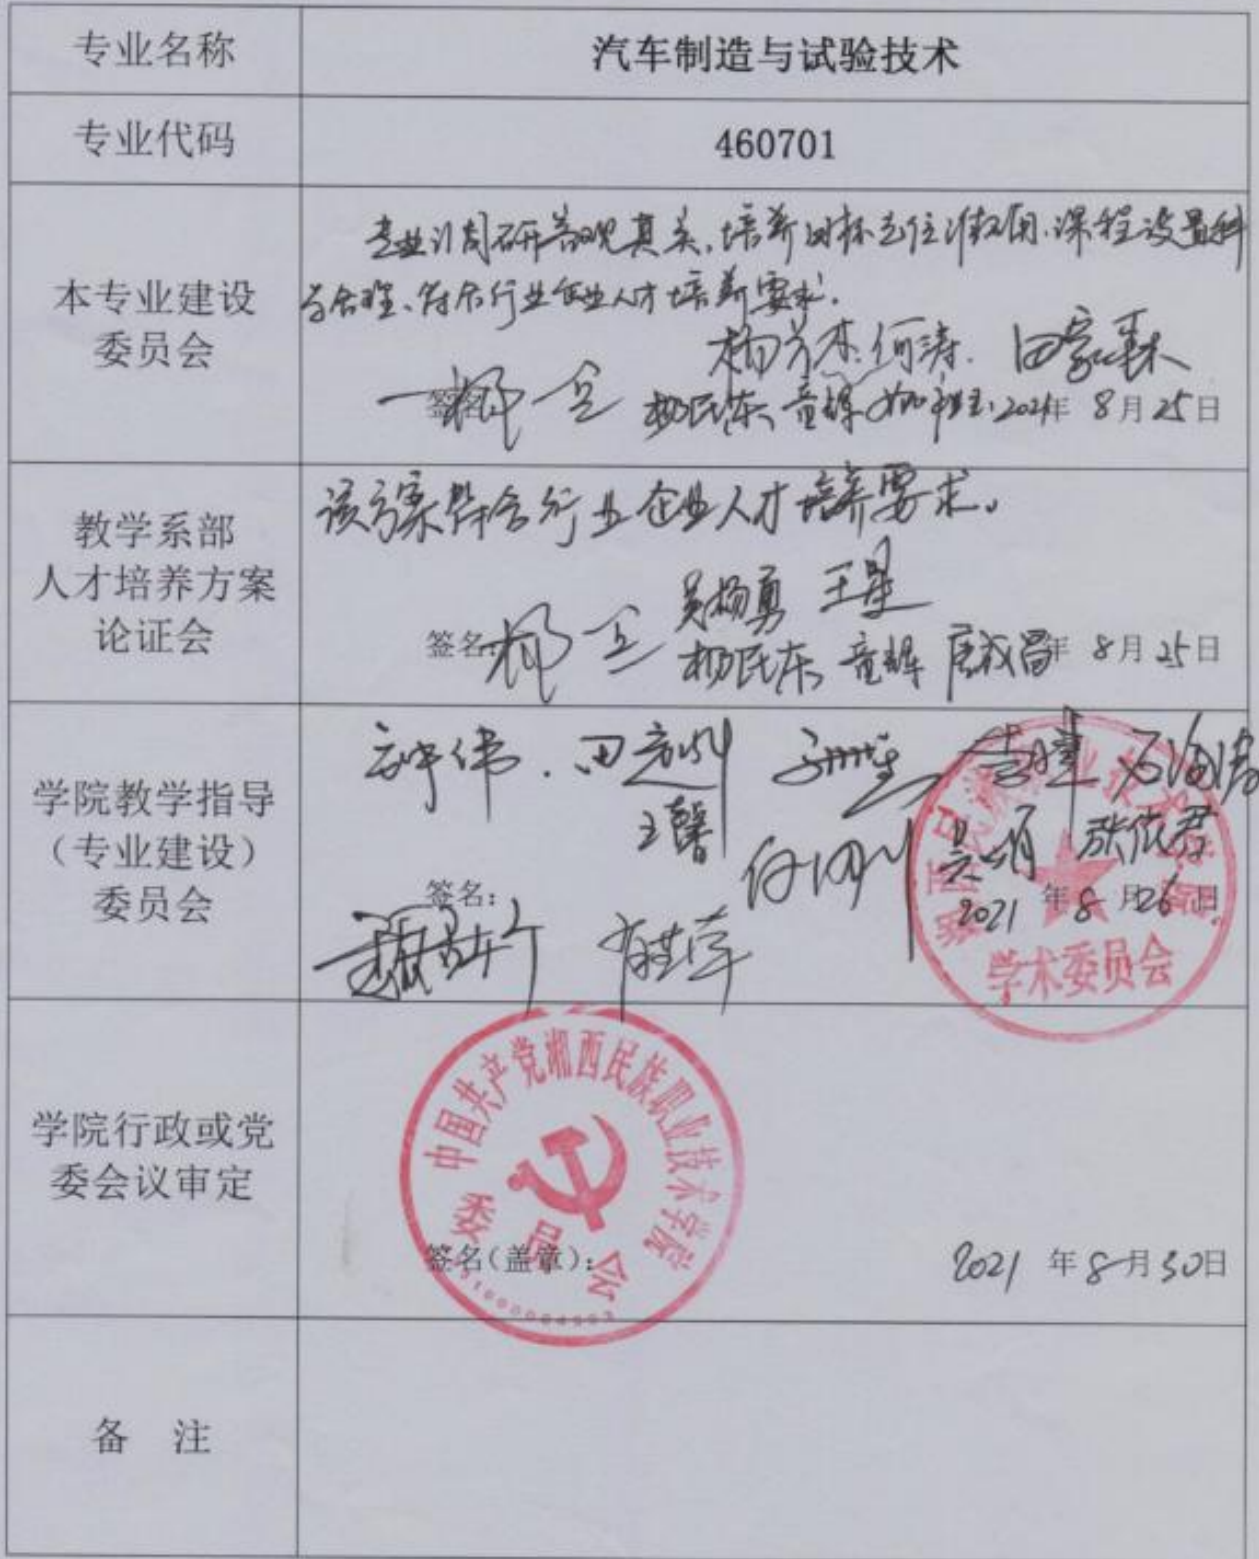 专业名称
汽车制造与试验技术
专业代码
460701
本专业建设
委员会
专业调研客观真实、培养目标定位准确、课程设置科
学合理、符合行业企业人才培养要求.
何涛 田家森
签名 杨民东 童辉 2021年8月25日
教学系部
人才培养方案
论证会
该方案符合行业企业人才培养要求。
吴杨勇 王星
签名: 杨民东 童辉 年8月25日
学院教学指导
(专业建设)
委员会
王馨
张依君
签名:
2021年8月26日
学术委员会
学院行政或党
委会议审定
中国共产党湘西民族职业技术学院
委员会
签名(盖章):
2021年8月30日
备 注